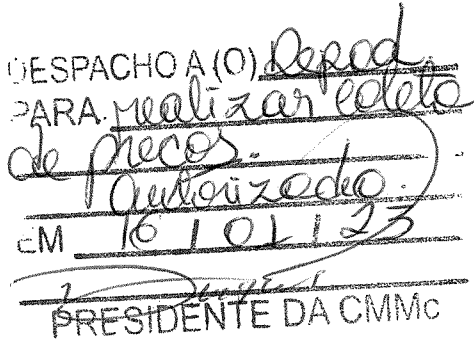 DESPACHO A (O) Depod
PARA. realizar coleta
de preços.
autorizado.
EM 16 / 01 / 23
PRESIDENTE DA CMMc